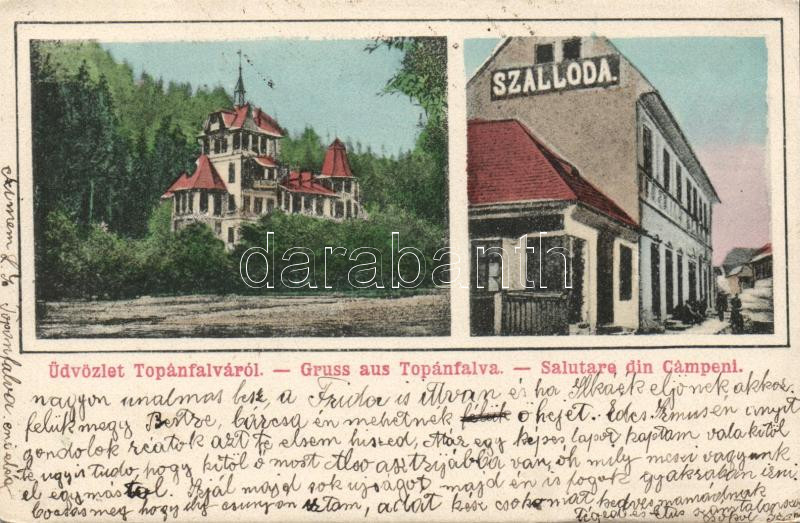 SZALLODA.
darabanth
Üdvözlet Topánfalváról. — Gruss aus Topánfalva. — Salutare din Câmpeni.
nagyon unalmas lesz, a Frida is itt van és ha Ilkáek eljönek akkor
kelük megy Bertze, bárcsa én mehetnék ő hejet. Edes Emusén anyit
gondolok reátok azt te elsem hiszed, Mar egy képes lapot kaptam valakitől
te ugyis tudo, hogy kitől ő most Also asztrijábla van, oh mily messi vagyunk
el egymastol. Irjál majd sok ujságot, majd én is fogok gyakraban irni.
Bocsás meg hogy ily csunyon irtam, adát kéz csokomat kedves mamádnak
Tégedés etus számtalanszor